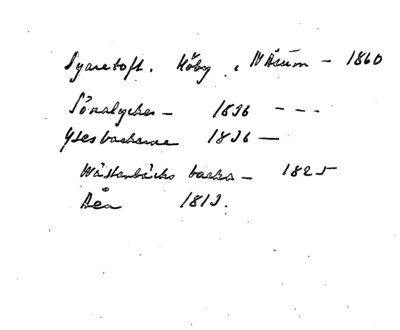 Pyaretoft. Köby, Wåsum - 1860
Sönalycka - 1836 - - -
Ysesbackarne 1836 -
Wästanbäcks backa - 1825
Åen 1813.